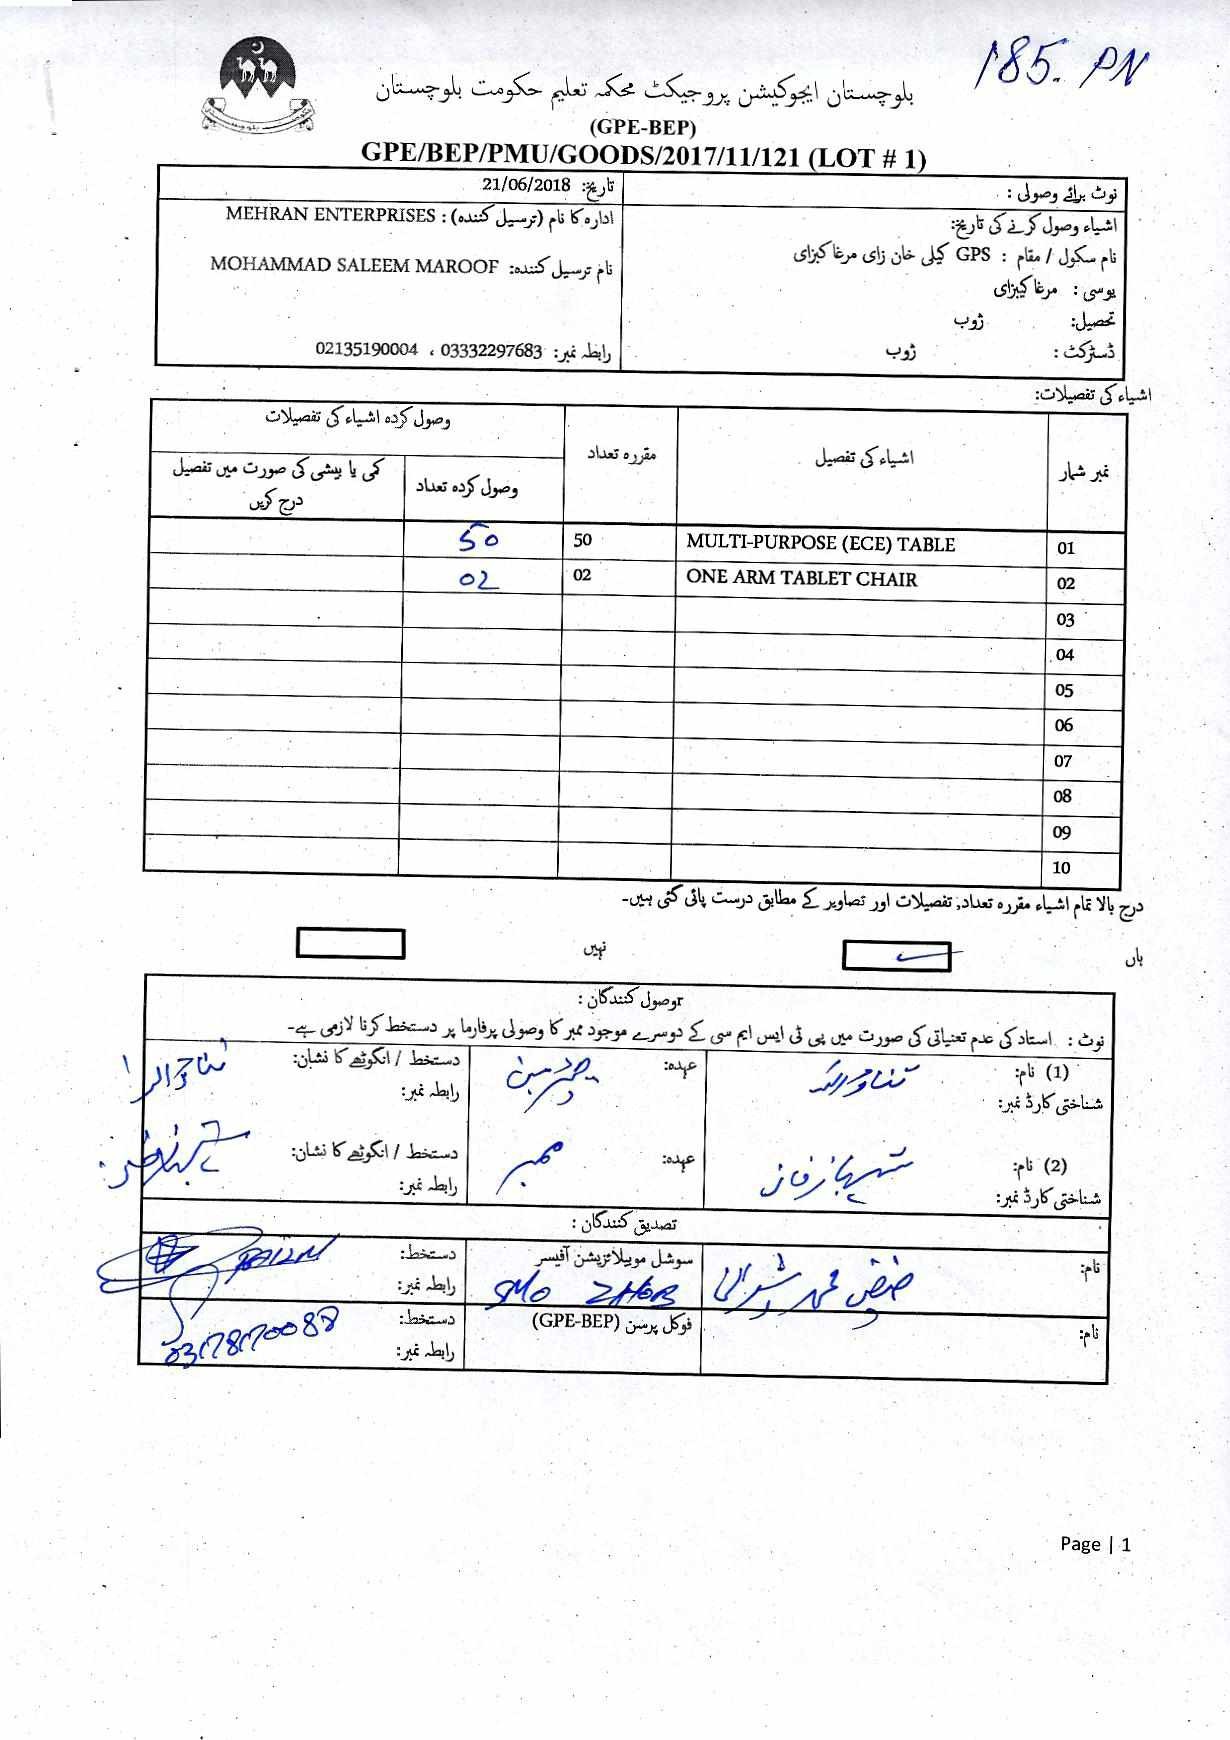 185. PN
بلوچستان ایجوکیشن پروجیکٹ محکمہ تعلیم حکومت بلوچستان
(GPE-BEP)
GPE/BEP/PMU/GOODS/2017/11/121 (LOT # 1)
نوٹ برائے وصولی :
تاریخ: 21/06/2018
اشیاء وصول کرنے کی تاریخ:
نام سکول / مقام : GPS کیلی خان زای مرغا کبزای
یوسی : مرغا کبزای
تحصیل: ژوب
ڈسٹرکٹ : ژوب
ادارہ کا نام (ترسیل کنندہ) : MEHRAN ENTERPRISES
نام ترسیل کنندہ: MOHAMMAD SALEEM MAROOF
رابطہ نمبر: 03332297683 ، 02135190004
اشیاء کی تفصیلات:
نمبر شمار اشیاء کی تفصیل مقررہ تعداد وصول کردہ اشیاء کی تفصیلات
وصول کردہ تعداد کمی یا بیشی کی صورت میں تفصیل درج کریں
01 MULTI-PURPOSE (ECE) TABLE 50 50
02 ONE ARM TABLET CHAIR 02 02
03
04
05
06
07
08
09
10
درج بالا تمام اشیاء مقررہ تعداد, تفصیلات اور تصاویر کے مطابق درست پائی گئی ہیں۔
ہاں نہیں
rوصول کنندگان :
نوٹ : استاد کی عدم تعنیاتی کی صورت میں پی ٹی ایس ایم سی کے دوسرے موجود ممبر کا وصولی پرفارما پر دستخط کرنا لازمی ہے۔
(1) نام: عہدہ: چیئرمین دستخط / انگوٹھے کا نشان:
شناختی کارڈ نمبر: رابطہ نمبر:
(2) نام: عہدہ: ممبر دستخط / انگوٹھے کا نشان:
شناختی کارڈ نمبر: رابطہ نمبر:
تصدیق کنندگان :
نام: سوشل موبیلائزیشن آفیسر دستخط:
SMO ZHOB رابطہ نمبر:
نام: فوکل پرسن (GPE-BEP) دستخط:
رابطہ نمبر:
Page | 1